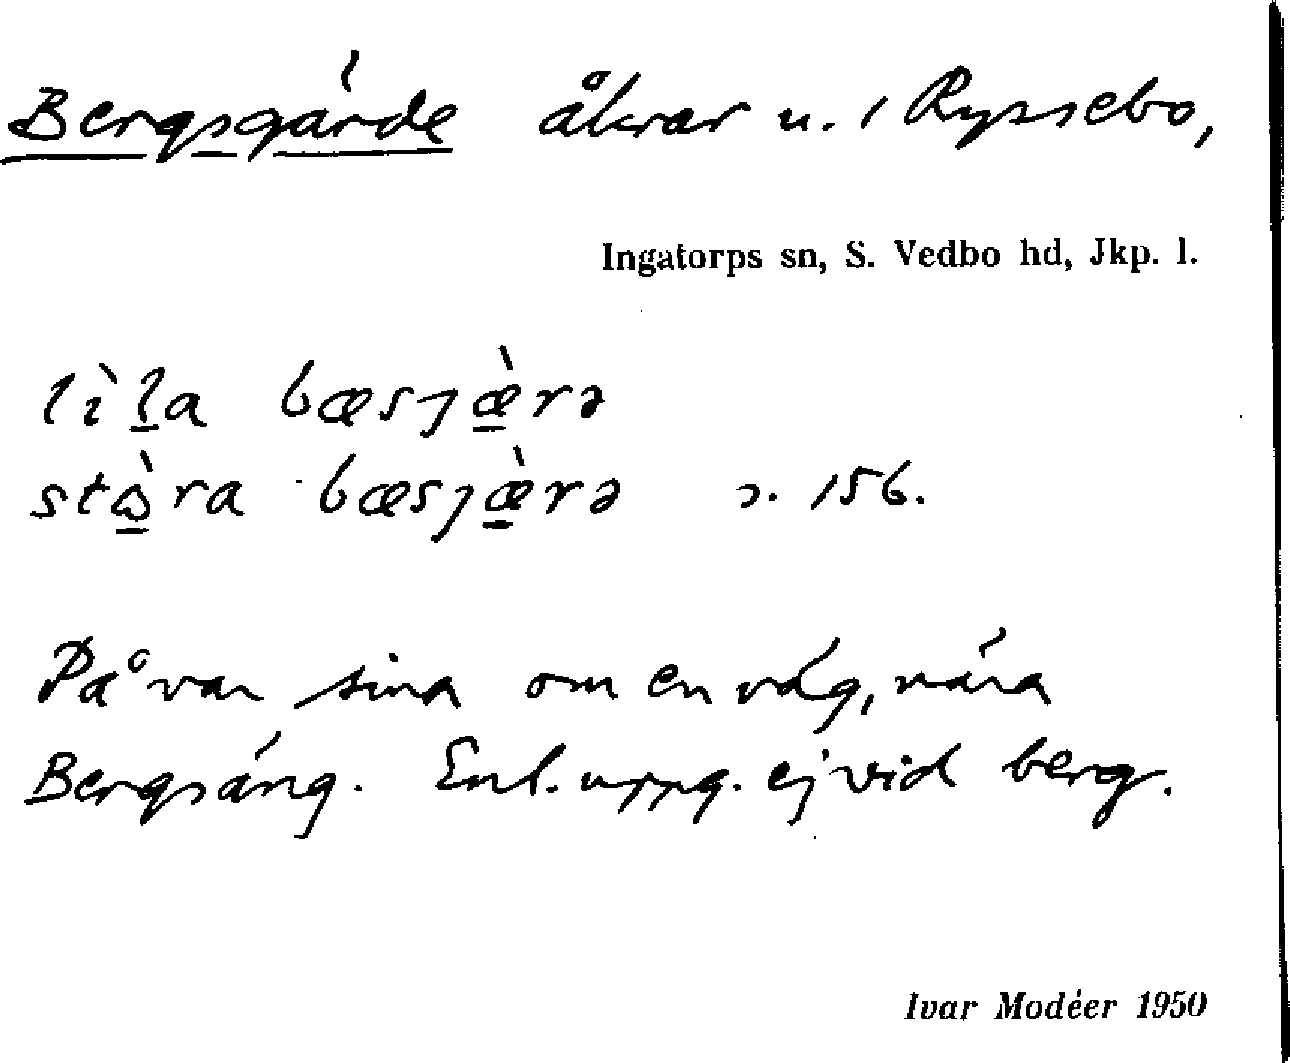 Bergsgärde åkrar u. / Ryssebo,
Ingatorps sn, S. Vedbo hd, Jkp. l.
lìl̲a bæsȷæ̲̀rə
stὼ̲ra bæsȷæ̲̀rə s. 156.
På var sina om en väg, nära
Bergsäng. Enl. uppg. ej vid berg.
Ivar Modéer 1950